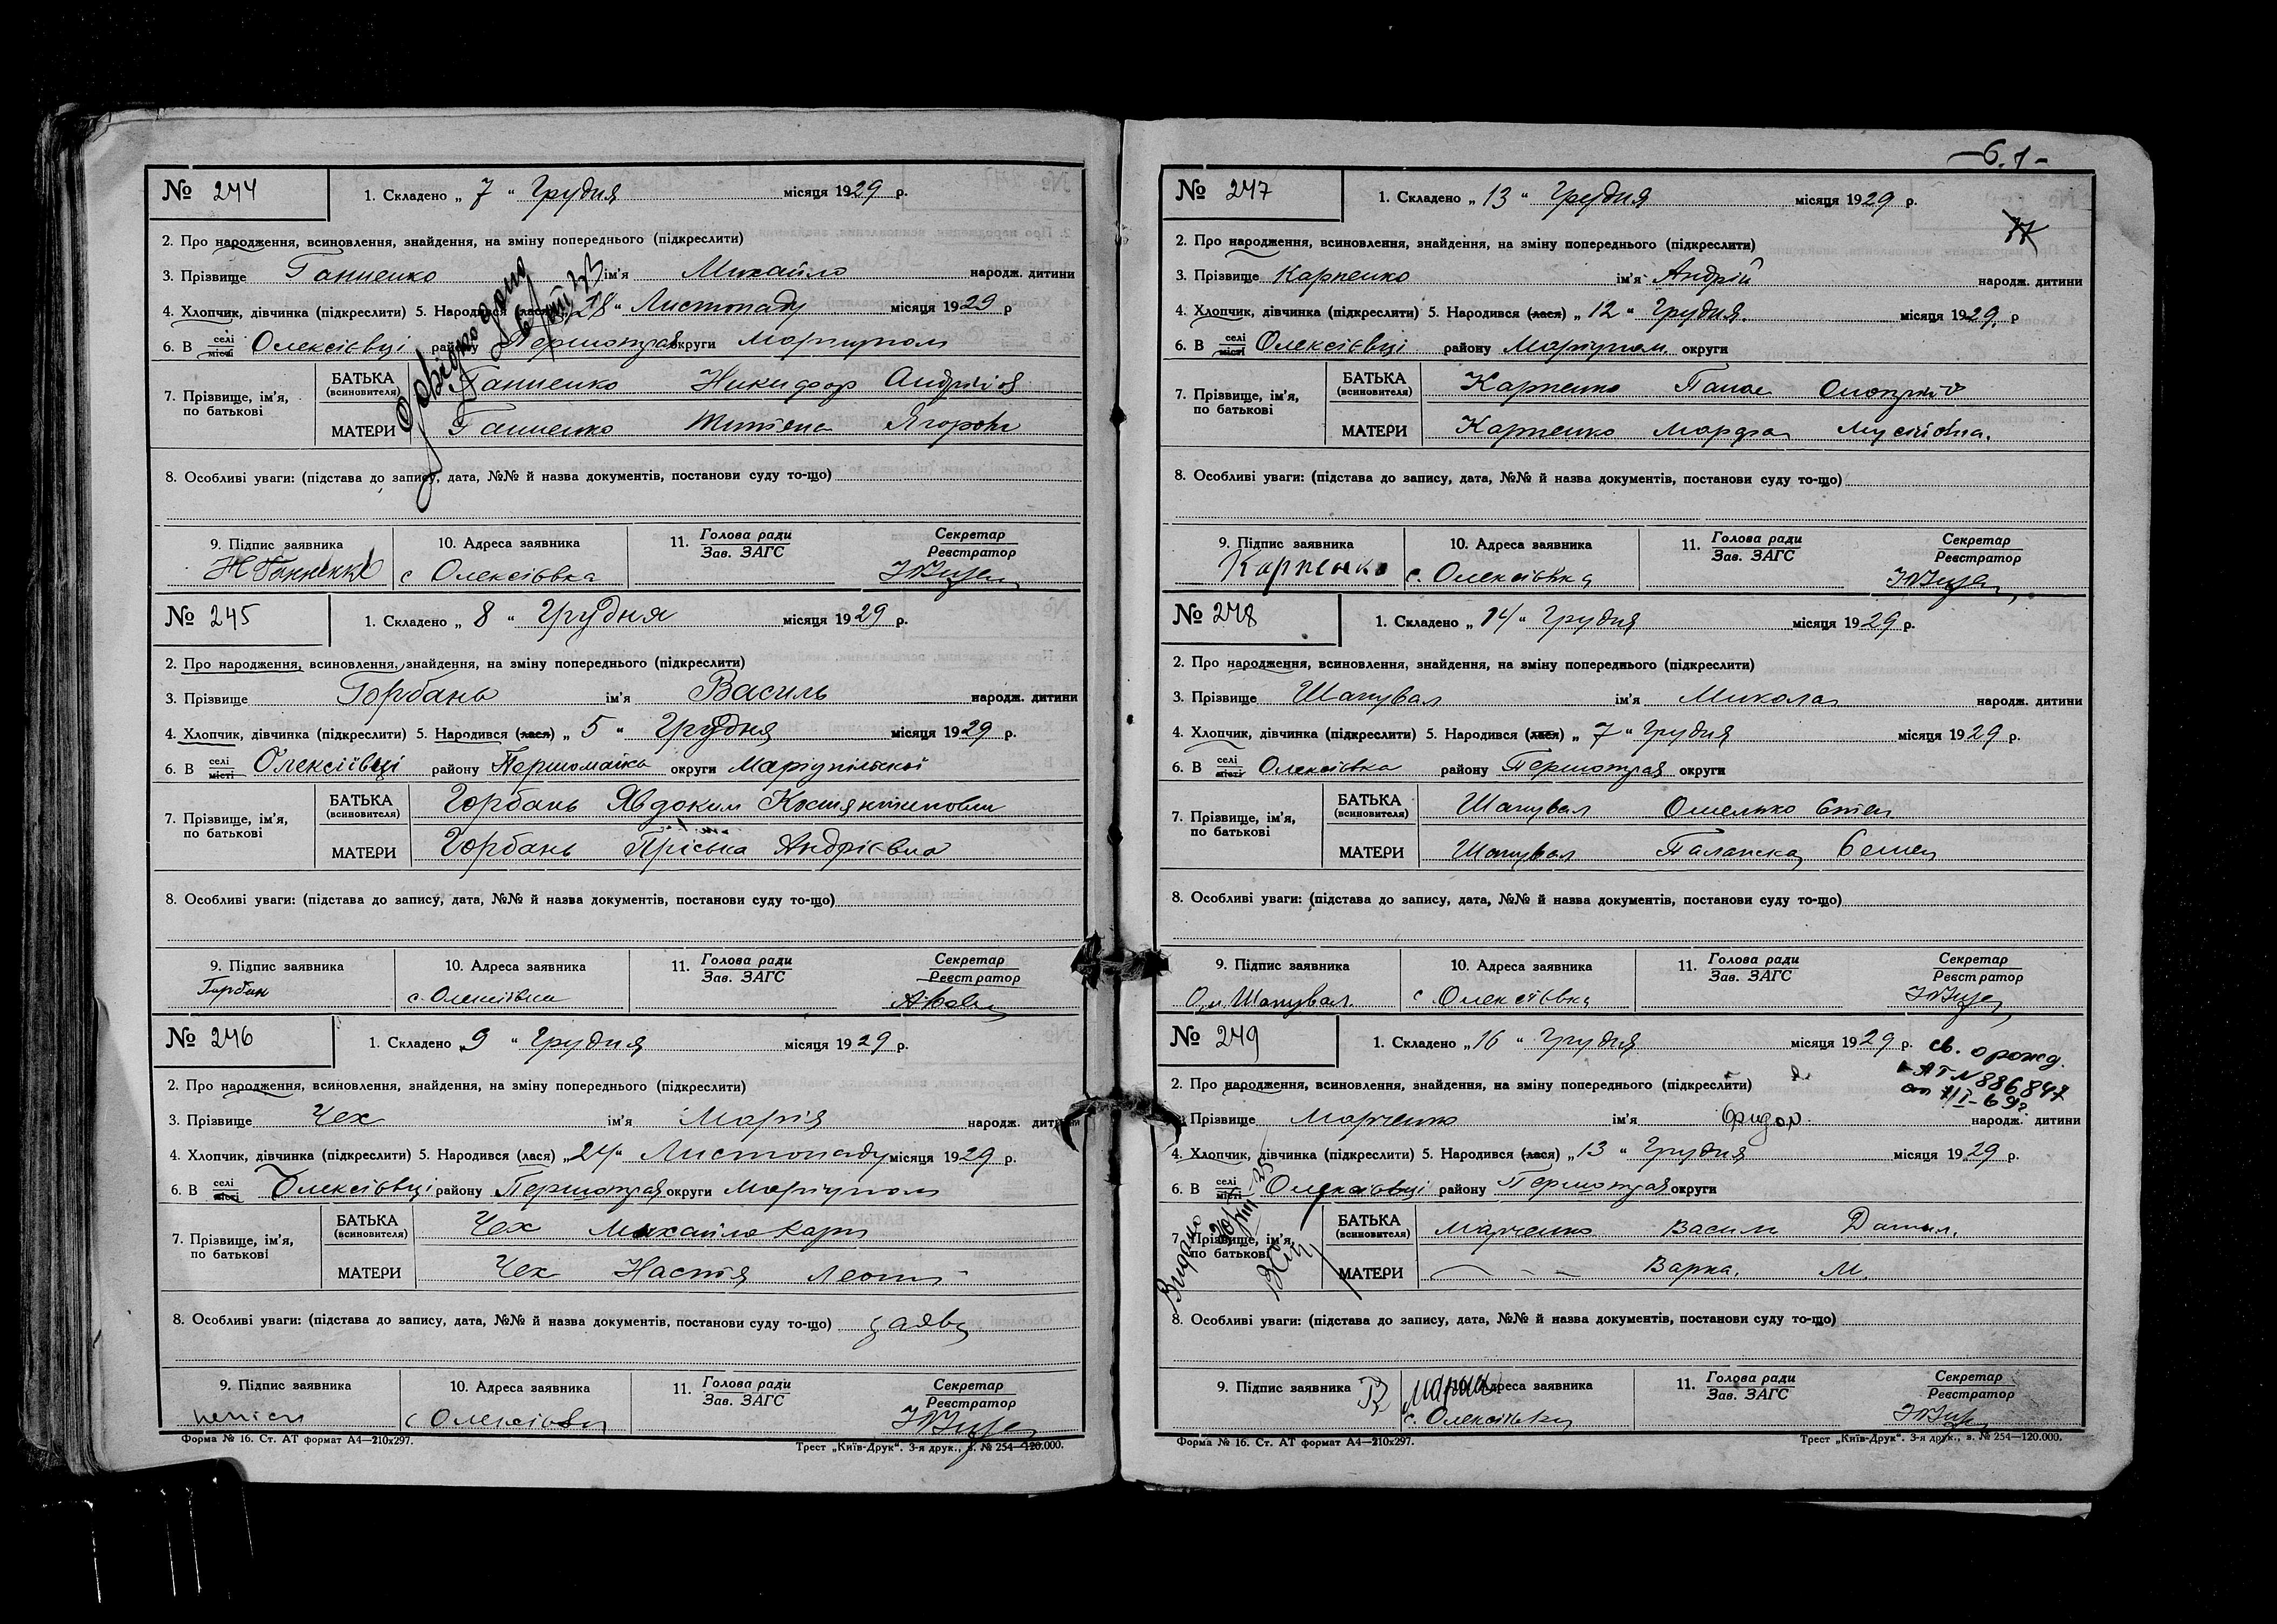 № 244 1. Складено „ 7 “ Грудня місяця 1929 р.
2. Про народження, всиновлення, знайдення, на зміну попереднього (підкреслити)
3. Прізвище Ганненко ім'я Михайло народж. дитини
4. Хлопчик, дівчинка (підкреслити) 5. Народився (лася) „ 28 “ Листопаду місяця 1929 р
6. В селі місті Олексієвці району округи
7. Прізвище, ім'я, по батькові
БАТЬКА (всиновителя) Ганненко Никифор
МАТЕРИ Ганненко
8. Особливі уваги: (підстава до запису, дата, №№ й назва документів, постанови суду то-що)
9. Підпис заявника 10. Адреса заявника 11. Голова ради Зав. ЗАГС Секретар Реєстратор
с Олексіевка
№ 245 1. Складено „ 8 “ Грудня місяця 1929 р.
2. Про народження, всиновлення, знайдення, на зміну попереднього (підкреслити)
3. Прізвище Горбань ім'я Василь народж. дитини
4. Хлопчик, дівчинка (підкреслити) 5. Народився (лася) „ 5 “ Грудня місяця 1929 р.
6. В селі місті Олексіївці району Першомайск округи Маріупільської
7. Прізвище, ім'я, по батькові
БАТЬКА (всиновителя) Горбань Явдоким
МАТЕРИ Горбань Пріська Андрієвна
8. Особливі уваги: (підстава до запису, дата, №№ й назва документів, постанови суду то-що)
9. Підпис заявника 10. Адреса заявника 11. Голова ради Зав. ЗАГС Секретар Реєстратор
Горбан
№ 246 1. Складено „ 9 “ Грудня місяця 1929 р.
2. Про народження, всиновлення, знайдення, на зміну попереднього (підкреслити)
3. Прізвище Чех ім'я Марія народж. дитини
4. Хлопчик, дівчинка (підкреслити) 5. Народився (лася) „ 24 “ Листопаду місяця 1929 р.
6. В селі місті Олексієвці району округи
7. Прізвище, ім'я, по батькові
БАТЬКА (всиновителя) Чех Михайло Карп
МАТЕРИ Чех Настя
8. Особливі уваги: (підстава до запису, дата, №№ й назва документів, постанови суду то-що) заява
9. Підпис заявника 10. Адреса заявника 11. Голова ради Зав. ЗАГС Секретар Реєстратор
Форма № 16. Ст. АТ формат А4—210х297. Трест „Київ-Друк“. 3-я друк., з. № 254—120.000.
№ 247 1. Складено „ 13 “ Грудня місяця 1929 р.
2. Про народження, всиновлення, знайдення, на зміну попереднього (підкреслити)
3. Прізвище Карпенко ім'я Андрій народж. дитини
4. Хлопчик, дівчинка (підкреслити) 5. Народився (лася) „ 12 “ Грудня місяця 1929. р
6. В селі місті Олексієвці району Маріупол округи
7. Прізвище, ім'я, по батькові
БАТЬКА (всиновителя) Карпенко Панас
МАТЕРИ Карпенко Марфа Мусіивна.
8. Особливі уваги: (підстава до запису, дата, №№ й назва документів, постанови суду то-що)
9. Підпис заявника 10. Адреса заявника 11. Голова ради Зав. ЗАГС Секретар Реєстратор
Карпенко с. Олексіевка
№ 248 1. Складено „ 14 “ Грудня місяця 1929 р.
2. Про народження, всиновлення, знайдення, на зміну попереднього (підкреслити)
3. Прізвище Шаповал ім'я Микола народж. дитини
4. Хлопчик, дівчинка (підкреслити) 5. Народився (лася) „ 7 “ Грудня місяця 1929 р.
6. В селі місті Олексіевка району округи
7. Прізвище, ім'я, по батькові
БАТЬКА (всиновителя) Шапувал Омелько
МАТЕРИ Шапувал
8. Особливі уваги: (підстава до запису, дата, №№ й назва документів, постанови суду то-що)
9. Підпис заявника 10. Адреса заявника 11. Голова ради Зав. ЗАГС Секретар Реєстратор
Ом. Шапувал с Олексіевка
№ 249 1. Складено „ 16 “ Грудня місяця 1929 р. св. о рожд.
2. Про народження, всиновлення, знайдення, на зміну попереднього (підкреслити) АГ № 886847
3. Прізвище Марченко ім'я народж. дитини
4. Хлопчик, дівчинка (підкреслити) 5. Народився (лася) „ 13 “ Грудня місяця 1929 р.
6. В селі місті Олексієвці району округи
7. Прізвище, ім'я, по батькові
БАТЬКА (всиновителя) Марченко Василь Данил.
МАТЕРИ — - - Варка. М.
8. Особливі уваги: (підстава до запису, дата, №№ й назва документів, постанови суду то-що)
9. Підпис заявника 10. Адреса заявника 11. Голова ради Зав. ЗАГС Секретар Реєстратор
с. Олексіевка
Форма № 16. Ст. АТ формат А4—210х297. Трест „Київ-Друк“. 3-я друк., з. № 254—120.000.